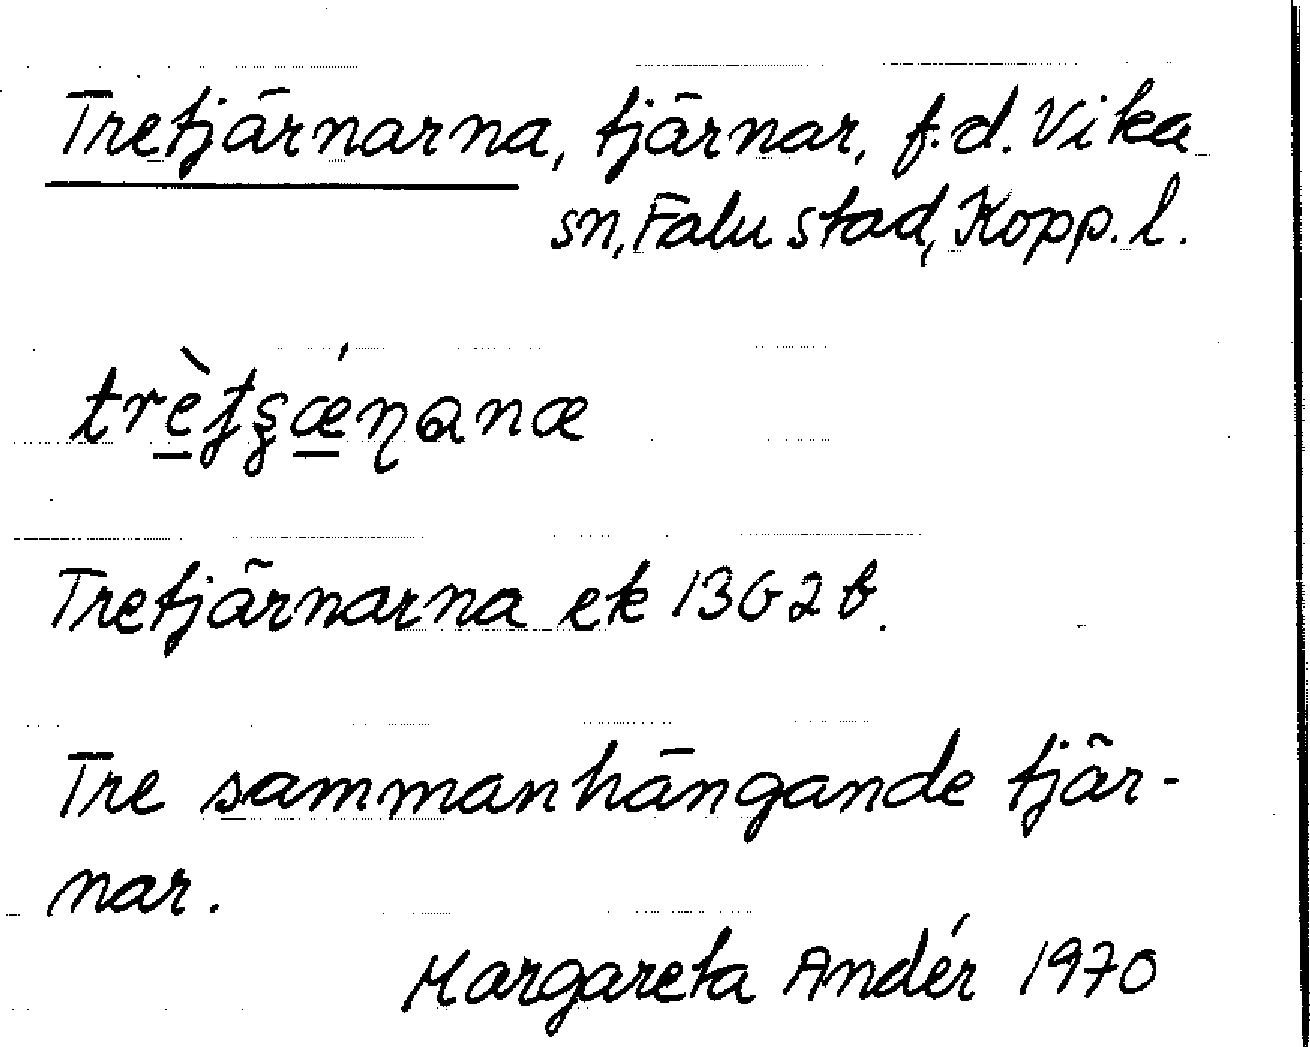 Tretjärnarna, tjärnar, f.d. Vika
sn, Falu stad, Kopp. l.
Tretjärnarna ek 13G2b.
Tre sammanhängande tjär-
nar.
Margareta Andér 1970